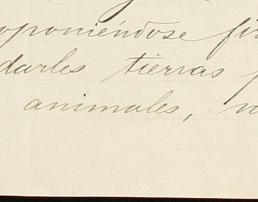 oponiéndose fir
darles tierras p
animales, n